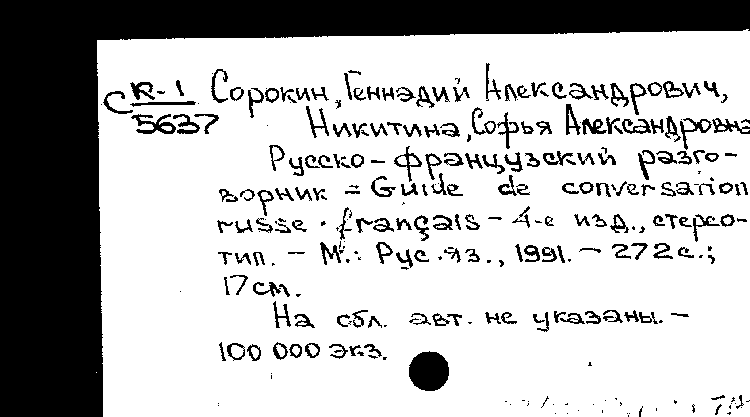 СК-1 Сорокин, Геннадий Александрович,
5637 Никитина, Софья Александровна
Русско-французский разго-
ворник = Guide de conversation
russe-français - 4-е изд., стерео-
тип. - М.: Рус.яз., 1991. - 272с.;
17см.
На обл. авт. не указаны. -
100 000 экз.